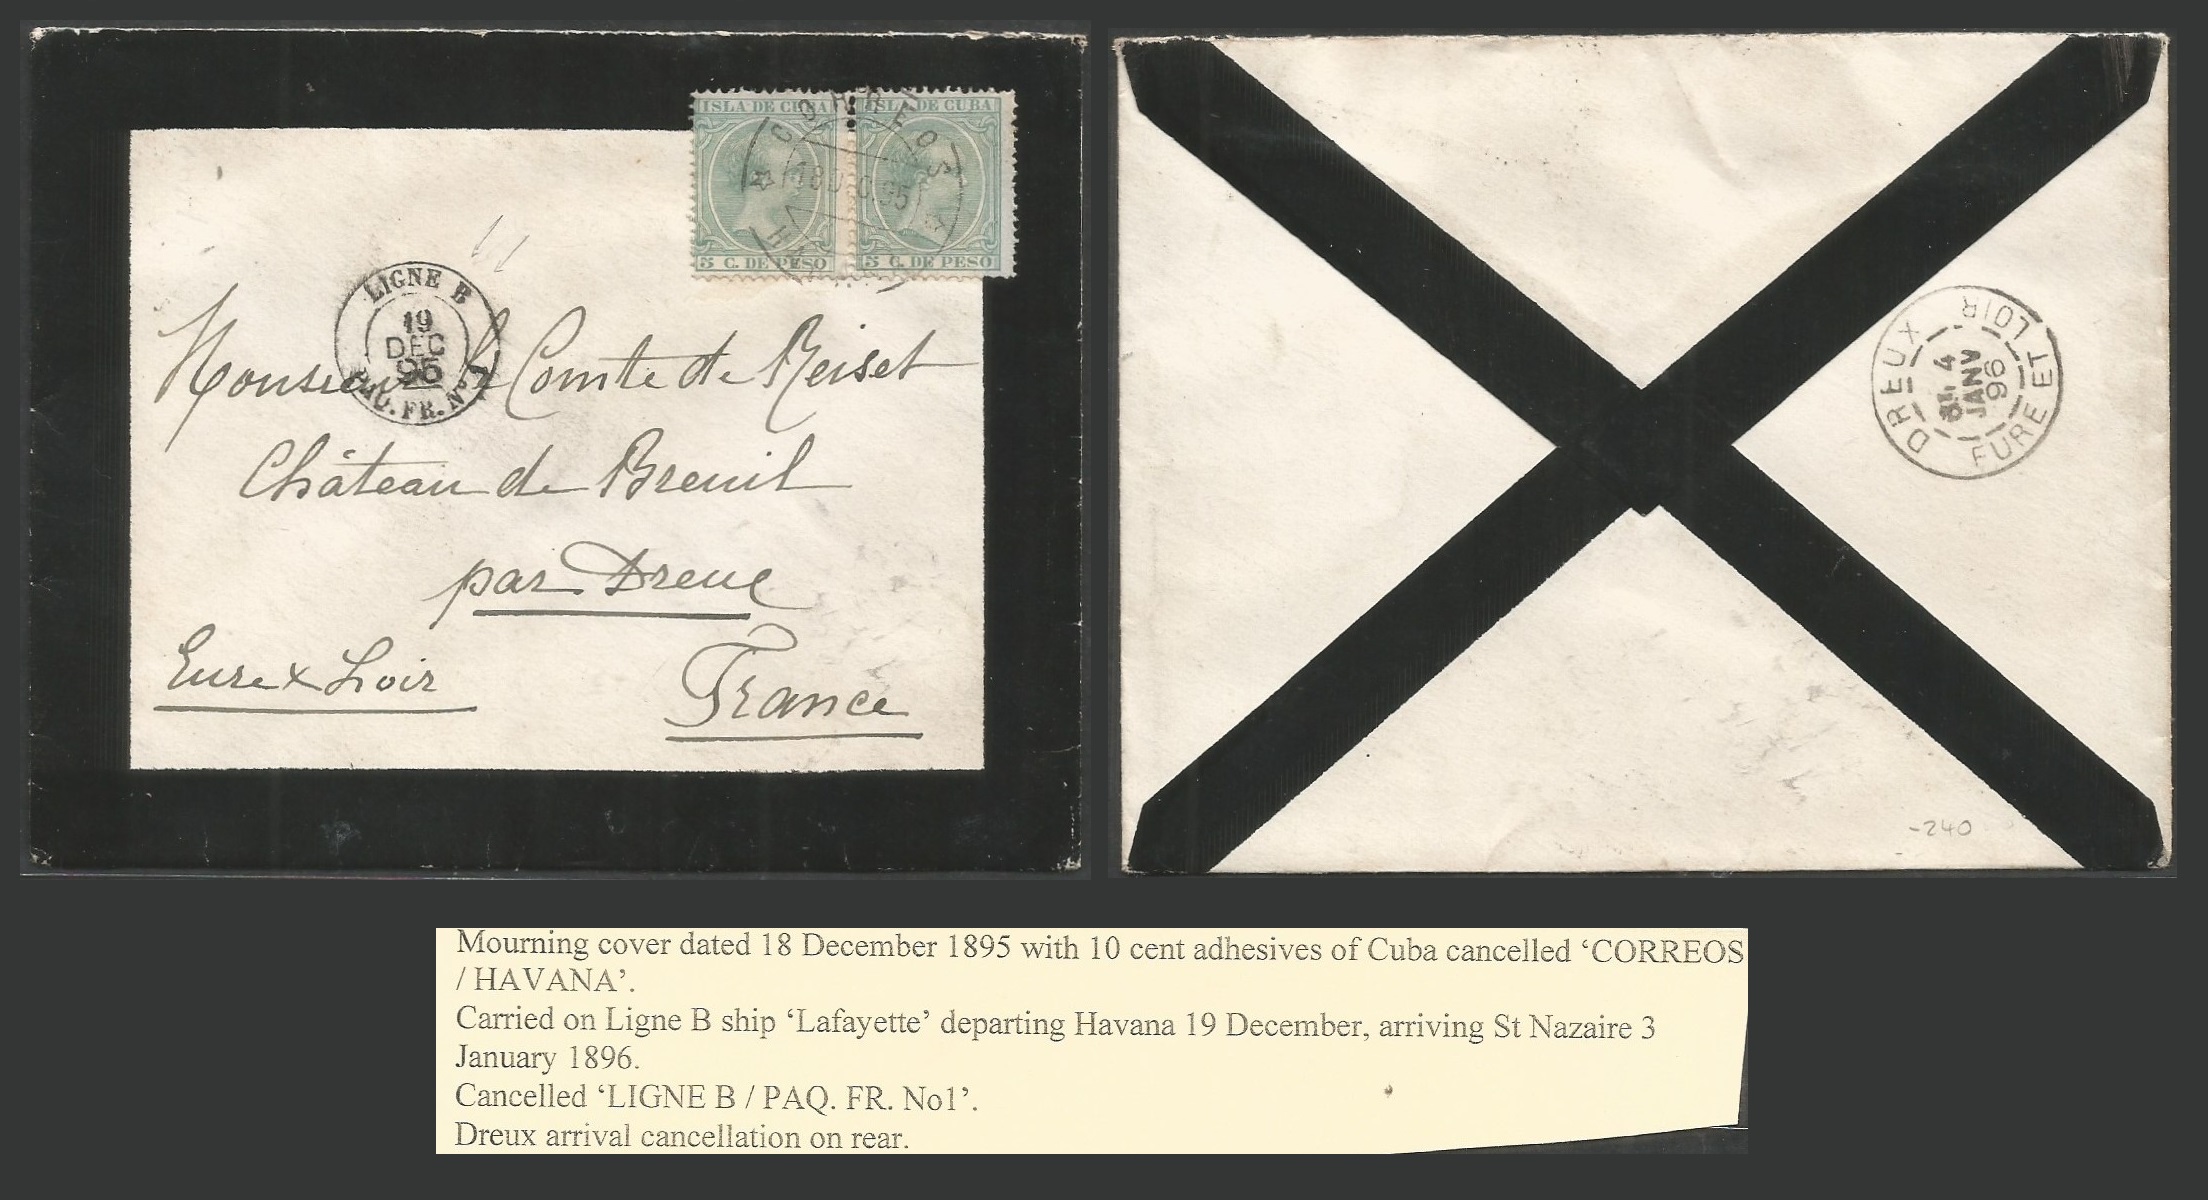 ISLA DE CUBA ISLA DE CUBA
CORREOS
18 DIC 95
5 C. DE PESO 5 C. DE PESO
LIGNE B
19
DEC
95
PAQ. FR. No 1
Monsieur le Comte de Reiset
Château de Breuil
par Dreux
Eure & Loir
France
DREUX
4
JANV
96
EURE ET LOIR
-240
Mourning cover dated 18 December 1895 with 10 cent adhesives of Cuba cancelled ‘CORREOS
/ HAVANA’.
Carried on Ligne B ship ‘Lafayette’ departing Havana 19 December, arriving St Nazaire 3
January 1896.
Cancelled ‘LIGNE B / PAQ. FR. No1’.
Dreux arrival cancellation on rear.